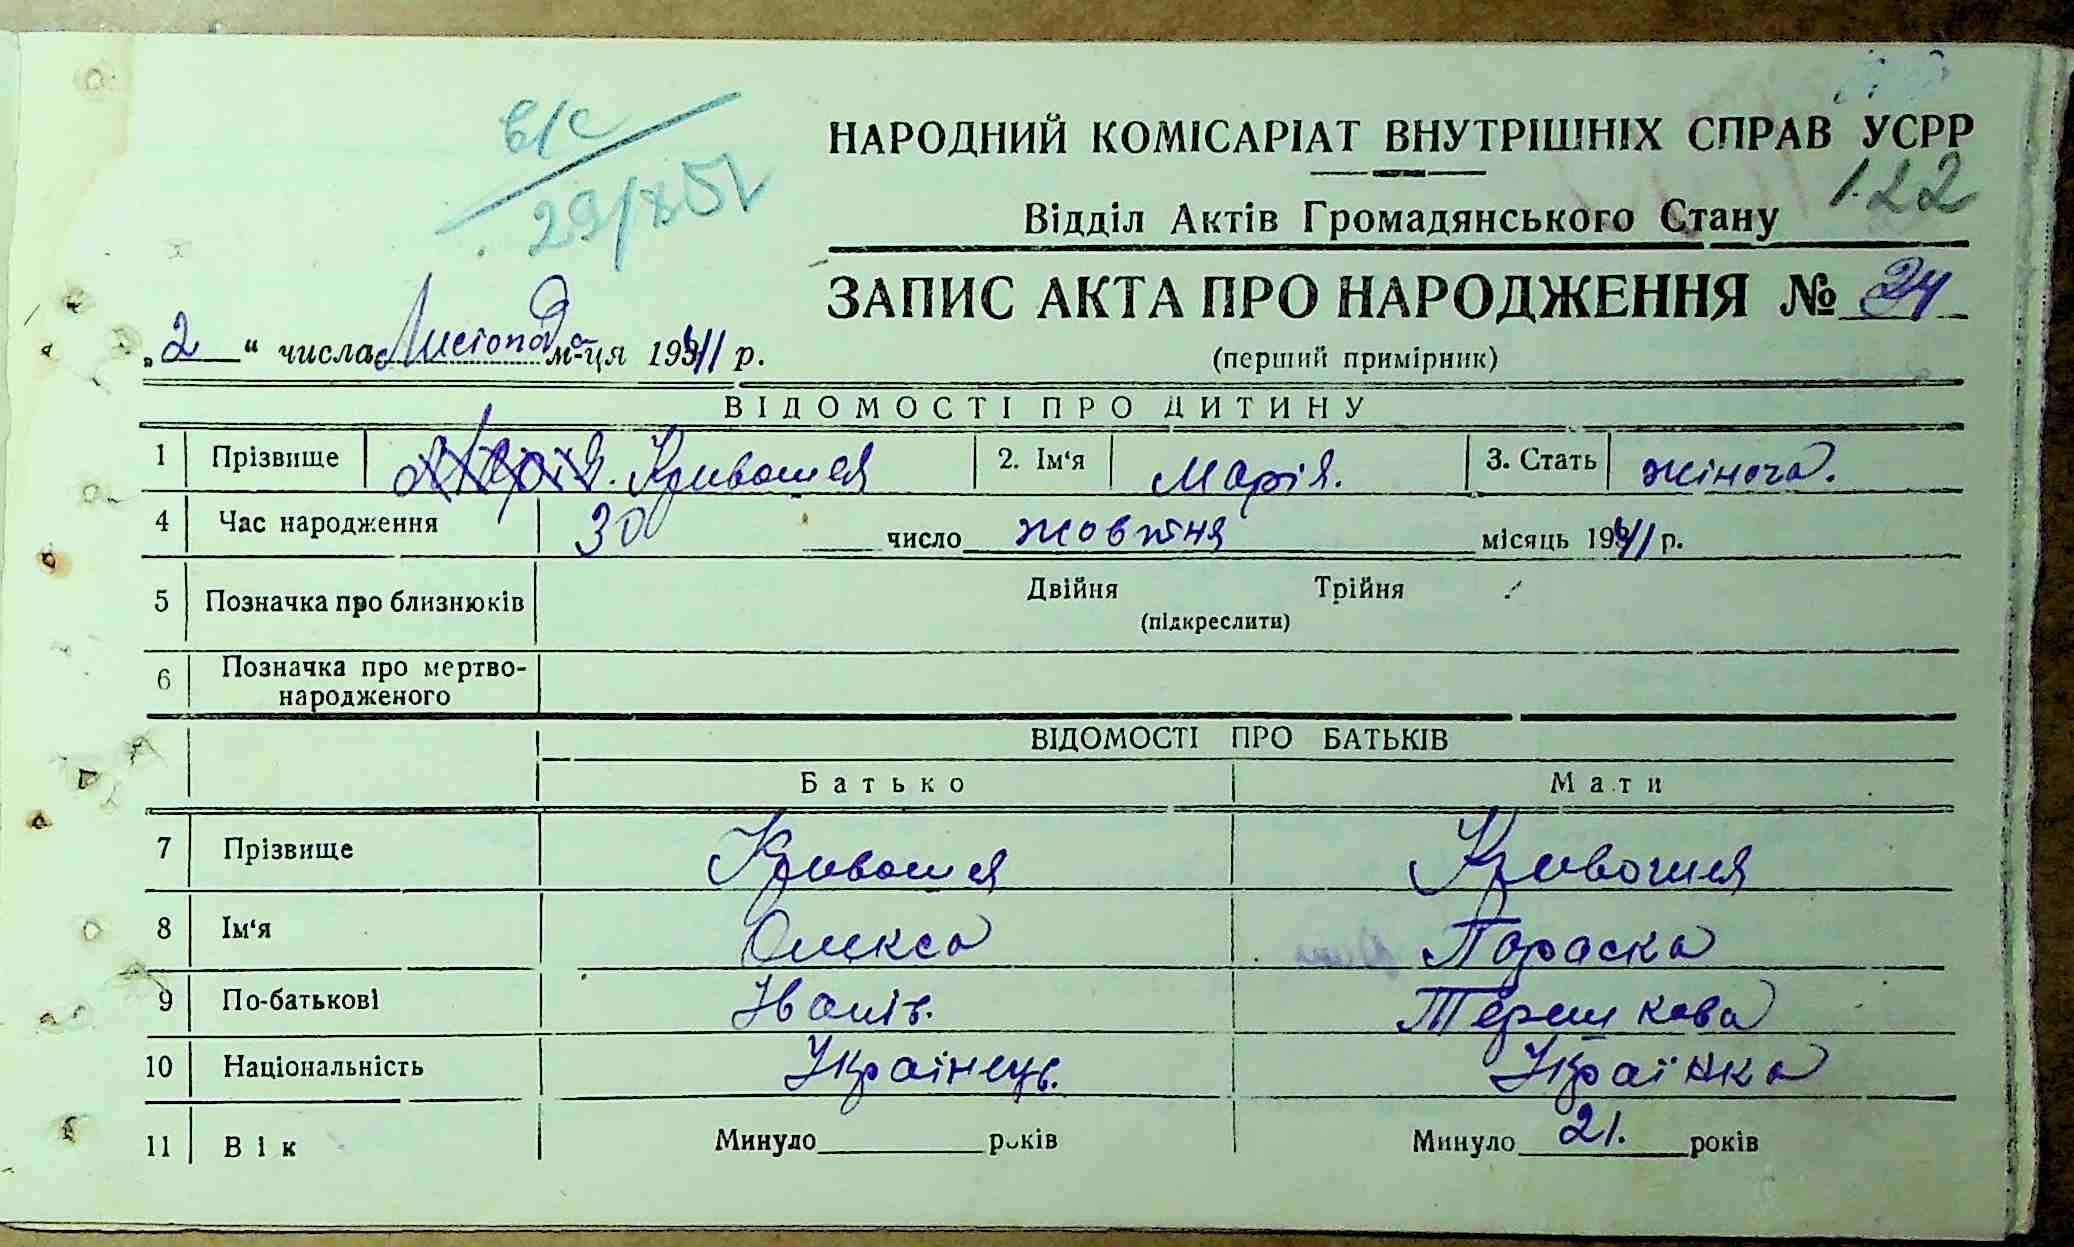 в/с
29/X 51
НАРОДНИЙ КОМІСАРІАТ ВНУТРІШНІХ СПРАВ УСРР
122
Відділ Актів Громадянського Стану
ЗАПИС АКТА ПРО НАРОДЖЕННЯ № 24
„ 2 “ числа Листопада м-ця 1941 р.
(перший примірник)
ВІДОМОСТІ ПРО ДИТИНУ
1 Прізвище Марія. Кривошея 2. Ім'я Марія. 3. Стать жіноча.
4 Час народження 30 число жовтня місяць 1941 р.
5 Позначка про близнюків Двійня Трійня
(підкреслити)
6 Позначка про мертво-
народженого
ВІДОМОСТІ ПРО БАТЬКІВ
Батько Мати
7 Прізвище Кривошея Кривошея
8 Ім'я Олекса Параска
9 По-батькові Іванів. Терешкова
10 Національність Українець. Українка
11 Вік Минуло років Минуло 21. років